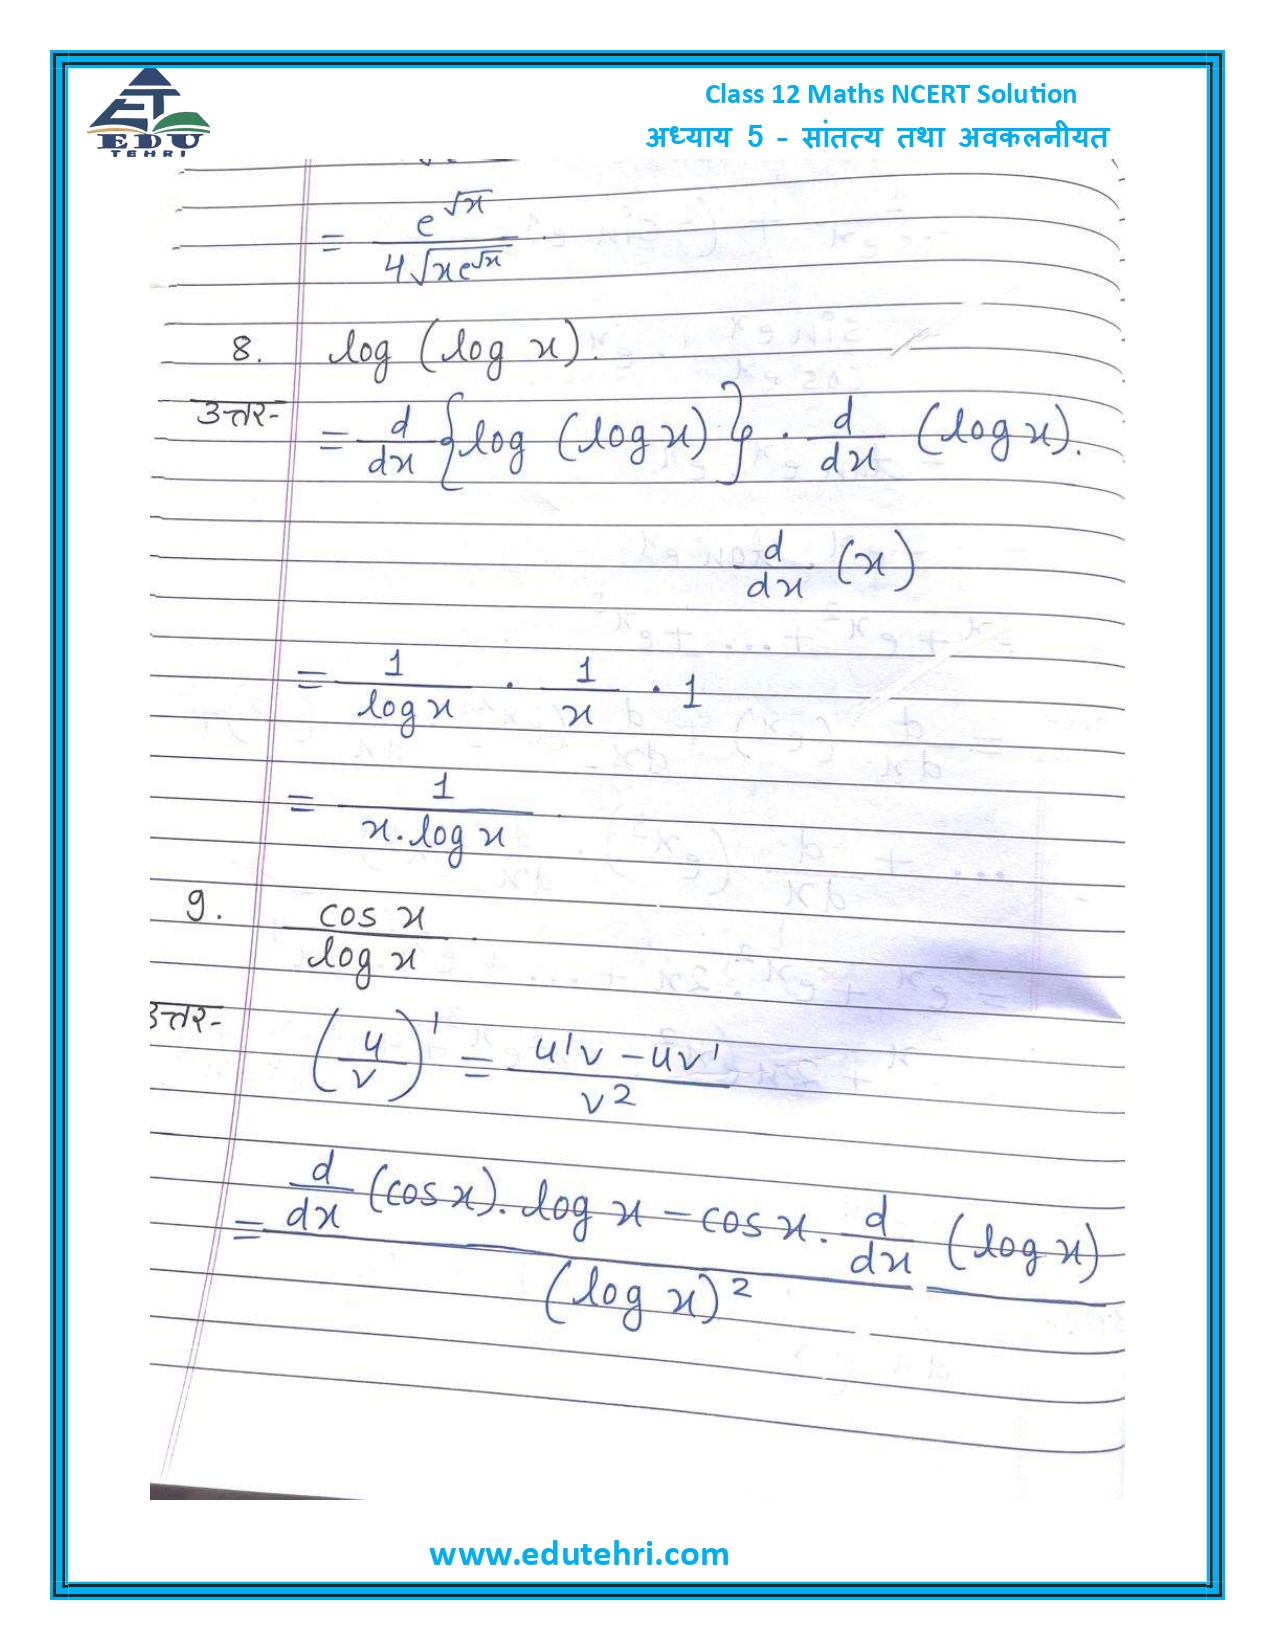 EDU
TEHRI
Class 12 Maths NCERT Solution
अध्याय 5 - सांतत्य तथा अवकलनीयत
= e^√x / 4√(xe^√x)
8. log (log x).
उत्तर- = d/dx {log (log x)} . d/dx (log x).
d/dx (x)
= 1/log x . 1/x . 1
= 1/(x.log x)
9. cos x / log x
उत्तर- (u/v)' = (u'v - uv')/v²
= (d/dx (cos x). log x - cos x. d/dx (log x)) / (log x)²
www.edutehri.com